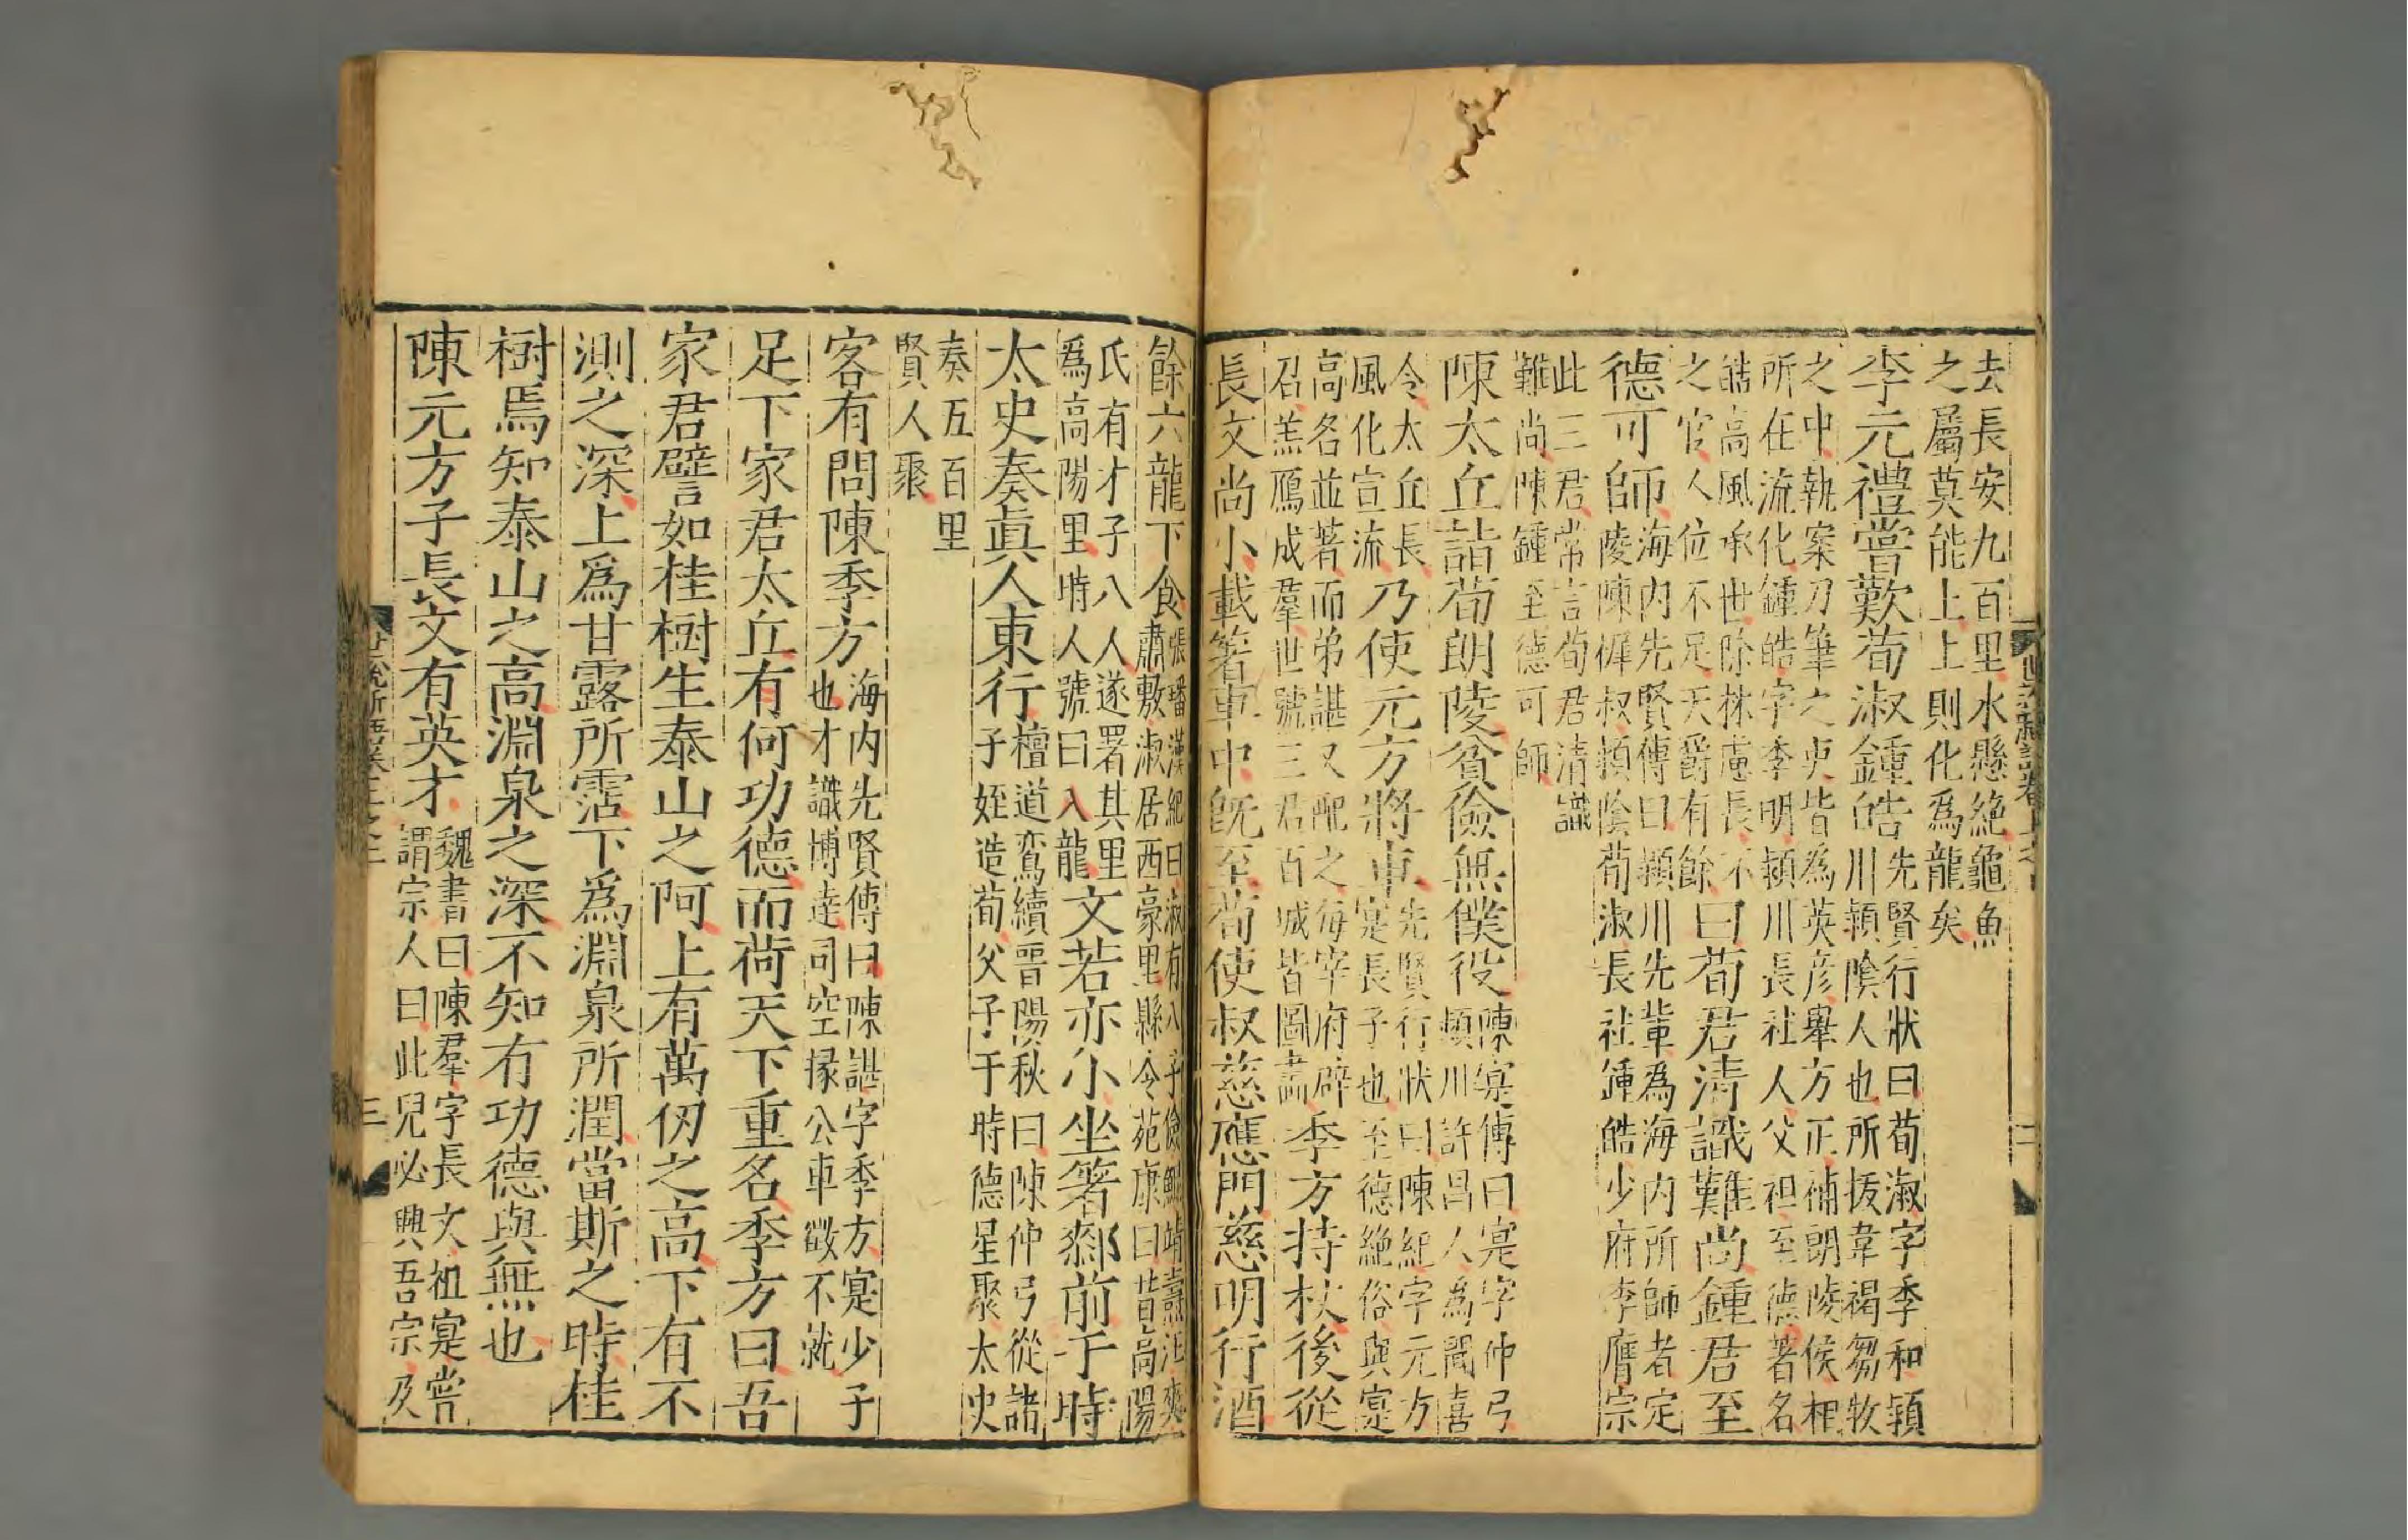 去長安九百里水懸絶龜魚
之屬莫能上上則化爲龍矣
李元禮嘗歎荀淑鍾皓
先賢行狀曰荀淑字季和潁
川潁陰人也所拔韋褐芻牧
之中執案刀筆之吏皆為英彦舉方正補朗陵侯相
所在流化鍾皓字季明潁川長社人父祖至德著名
皓高風承世除林慮長不
之官人位不足天爵有餘
曰荀君清識難尚鍾君至
德可師
海内先賢傳曰潁川先輩為海内所師者定
陵陳穉叔潁陰荀淑長社鍾皓少府李膺宗
此三君常言荀君清識
難尚陳鍾至德可師
陳太丘詣荀朗陵貧儉無僕役
陳寔傳曰寔字仲弓
潁川許昌人為聞喜
令太丘長
風化宣流
乃使元方將車
先賢行狀曰陳紀字元方
寔長子也至德絶俗與寔
高名並著而弟諶又配之海宰府辟
召羔鴈成羣世號三君百城皆圖畵
季方持杖後從
長文尚小載箸車中既至荀使叔慈應門慈明行酒
世說新語卷上之上
二
餘六龍下食
張璠漢紀曰淑有八子儉鯤靖燾汪爽
肅敷淑居西豪里縣令苑康曰昔高陽
氏有才子八人遂署其里
爲高陽里時人號曰八龍
文若亦小坐箸郄前于時
太史奏眞人東行
檀道鸞續晉陽秋曰陳仲弓從諸
子姪造荀父子于時德星聚太史
奏五百里
賢人聚
客有問陳季方
海内先賢傳曰陳諶字季方寔少子
也才識博達司空掾公車徵不就
足下家君太丘有何功德而荷天下重名季方曰吾
家君譬如桂樹生泰山之阿上有萬仞之高下有不
測之深上爲甘露所霑下爲淵泉所潤當斯之時桂
樹焉知泰山之高淵泉之深不知有功德與無也
陳元方子長文有英才
魏書曰陳羣字長文祖寔嘗
謂宗人曰此兒必興吾宗及
世說新語卷上之上
三